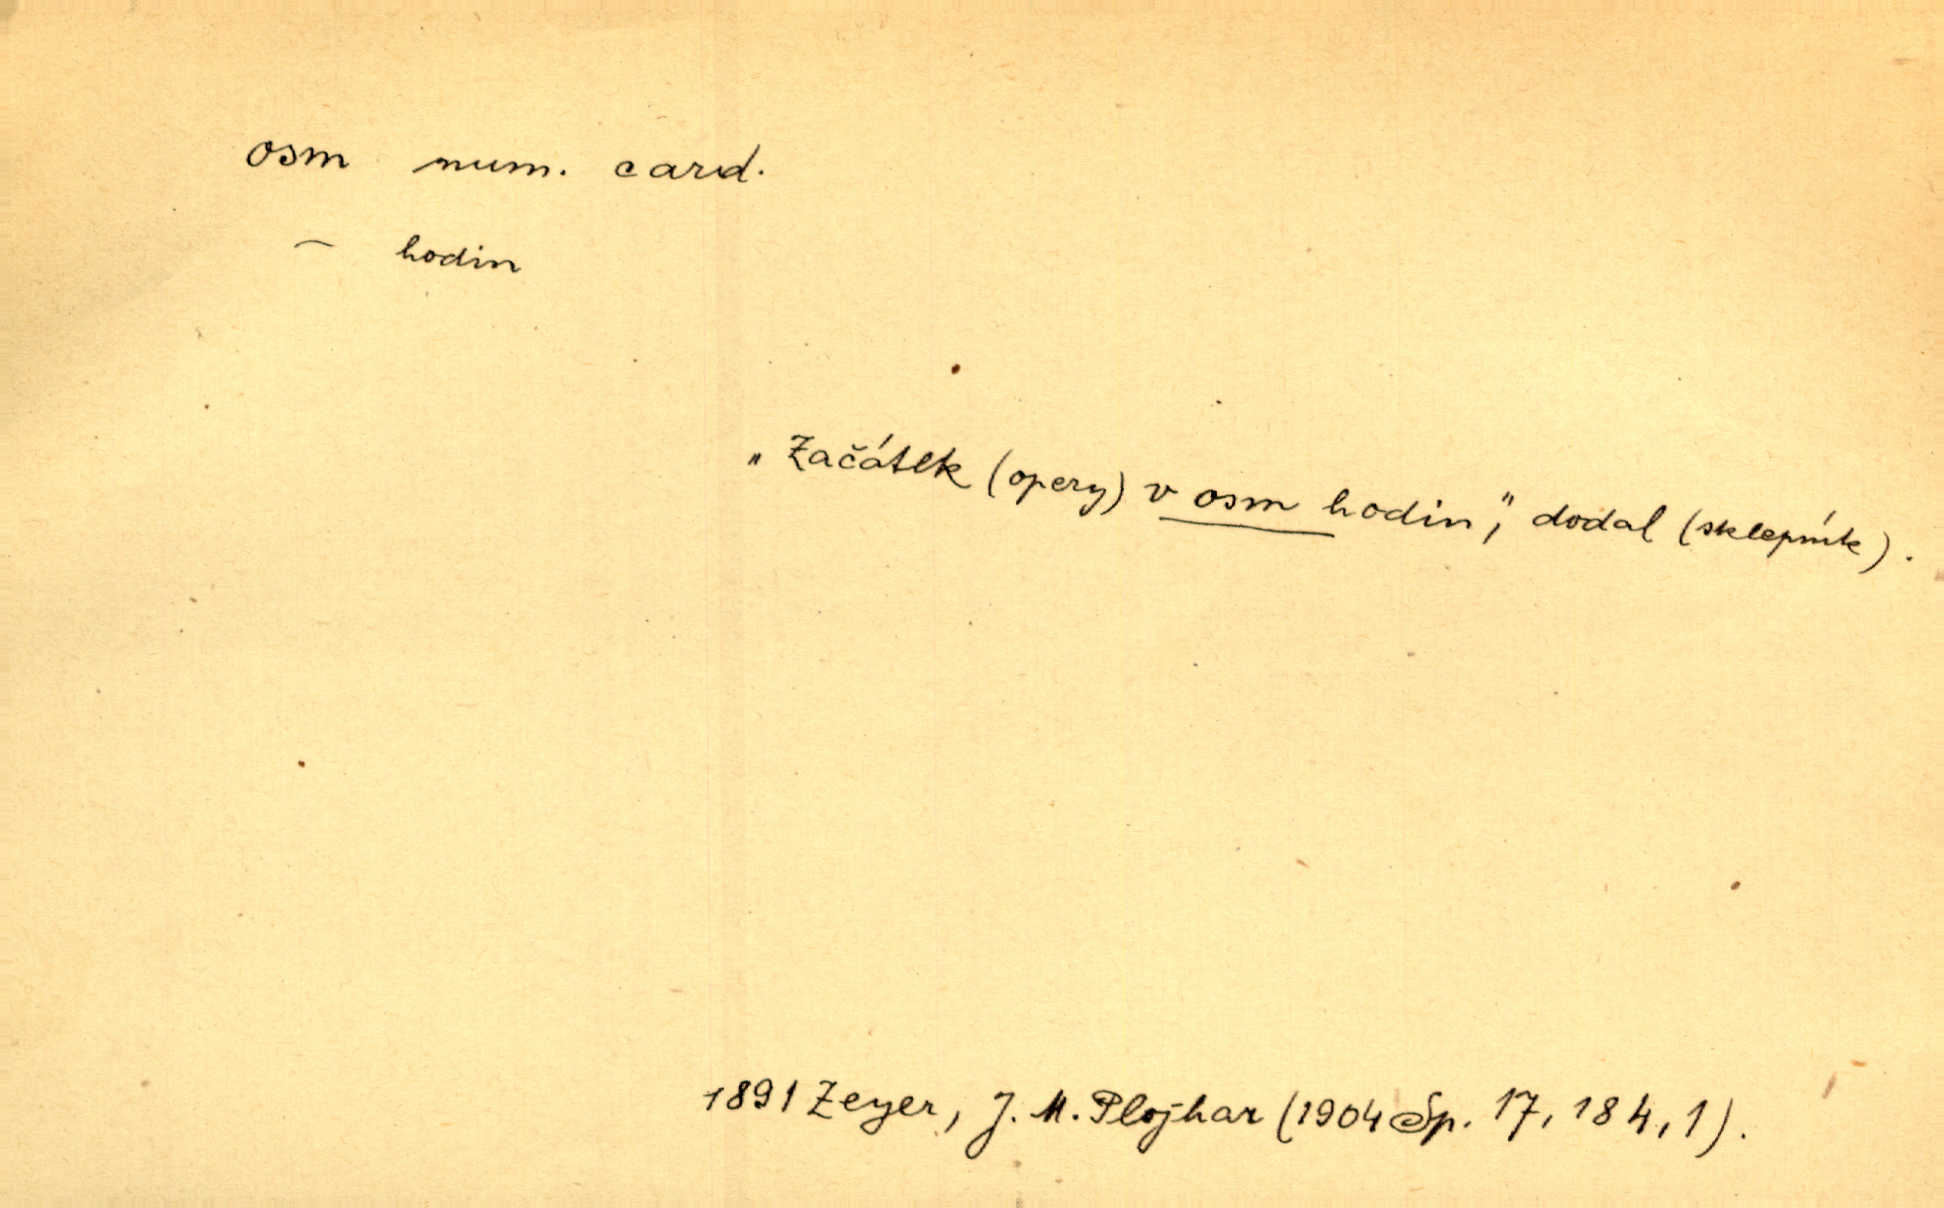 osm num. card.
– hodin
„Začátek (opery) v osm hodin“, dodal (sklepník).
1891 Zeyer, J. M. Plojhar (1904 Sp. 17, 184, 1).